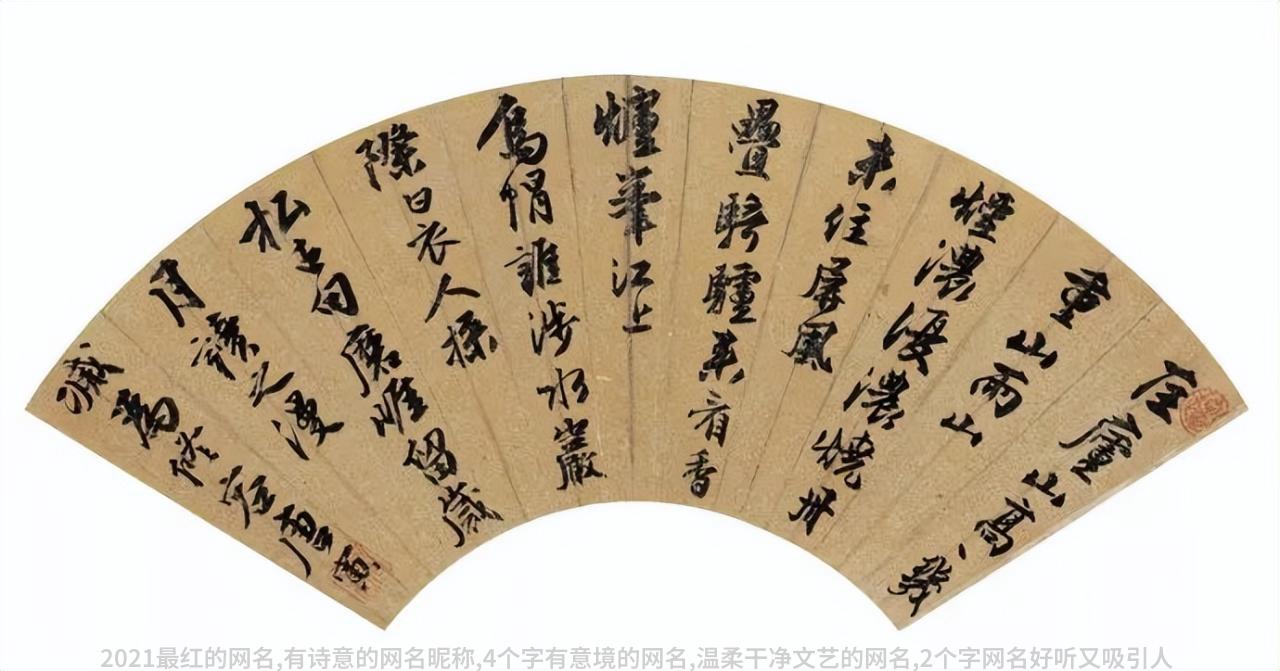 匡廬山高幾
重山雨山
煙濃復濃燒丹
未住屏風
疊騎驢來看香
爐峯江上
烏帽誰涉水巖
際白衣人採
松古句磨崖留歲
月讀之漫
滅爲修容唐寅
2021最红的网名,有诗意的网名昵称,4个字有意境的网名,温柔干净文艺的网名,2个字网名好听又吸引人